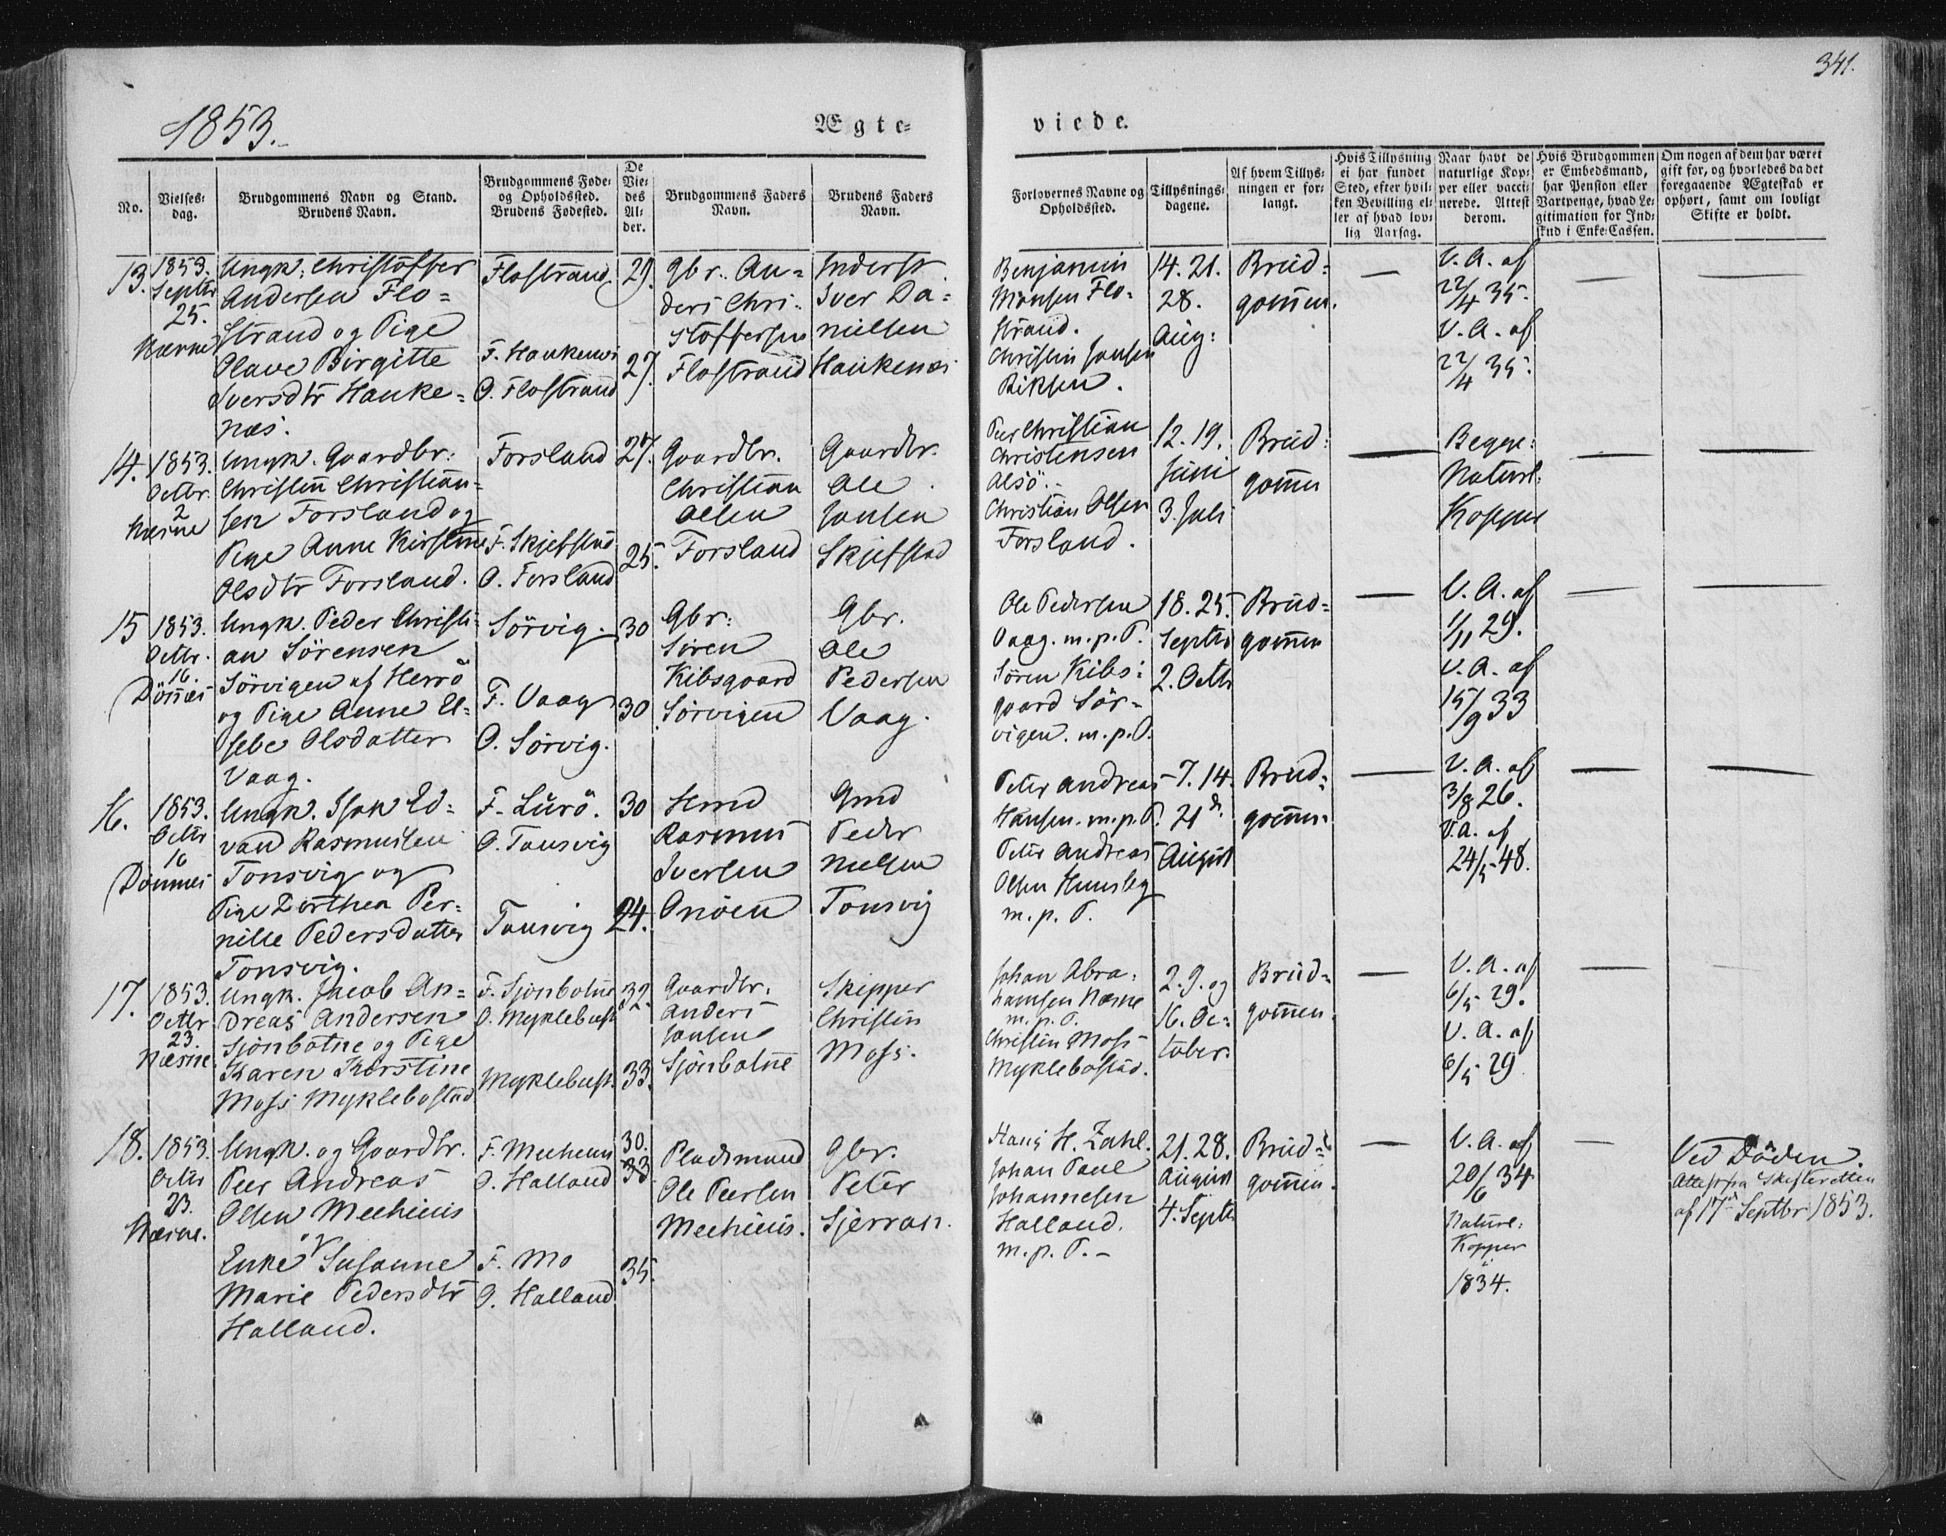 341.
1853.
Ægte-
viede.
No.
Vielses-
dag.
Brudgommens Navn og Stand.
Brudens Navn.
Brudgommens Føde-
og Opholdssted.
Brudens Fødested.
De
Vie-
des
Al-
der.
Brudgommens Faders
Navn.
Brudens Faders
Navn.
Forlovernes Navne og
Opholdssted.
Tillysnings-
dagene.
Af hvem Tillys-
ningen er for-
langt.
Hvis Tillysning
ei har fundet
Sted, efter hvil-
ken Bevilling el-
ler af hvad lov-
lig Aarsag.
Naar havt de
naturlige Kop-
per eller vacci-
nerede. Attest
derom.
Hvis Brudgommen
er Embedsmand,
har Pension eller
Vartpenge, hvad Le-
gitimation for Ind-
skud i Enke-Cassen.
Om nogen af dem har været
gift for, og hvorledes da det
foregaaende Ægteskab er
ophørt, samt om lovligt
Skifte er holdt.
13.
1853.
Septbr
25.
Næsne
Ungk. Christoffer
Andersen Flo-
strand og Pige
Olave Birgitte
Iversdtr Hauke-
næs.
Flostrand
F. Haukenæs
O. Flostrand
29.
27.
Gbr. An-
ders Chri-
stoffersen
Flostrand
Inderst
Iver Da-
nielsen
Haukenæs
Benjamin
Monsen Flo-
strand.
Christen Jansen
14. 21.
28.
Aug:
Brud-
gommen.
V. A. af
22/4 35.
V. A. af
22/4 35.
14.
1853.
Octbr.
2
Næsne
Ungk. Gaardbr.
Christen Christian-
sen Forsland og
Pige Anne Kirstine
Olsdtr Forsland.
Forsland
F. Skjefstad
O. Forsland
27.
25.
Gaardbr.
Christian
Olsen
Forsland
Gaardbr.
Ole
Jansen
Skjefstad
Peer Christian
Christensen
Alsö.
Christian Olsen
Forsland.
12. 19.
Juni
3. Juli
Brud-
gommen
Begge
Naturl:
Kopper
15
1853.
Octbr.
16.
Dönnes
Ungk. Peder Christi-
an Sørensen
Sörvigen af Herrö
og Pige Anne El-
sebe Olsdatter
Vaag.
Sörvig.
F. Vaag
O. Sörvig.
30
30
Gbr.
Sören
Kibsgaard
Sörvigen
Gbr.
Ole
Pedersen
Vaag.
Ole Pedersen
Vaag. m.p.P.
Sören Kibs-
gaard Sör-
vigen. m.p.P.
18. 25.
Septbr
2. Octbr
Brud-
gommen
V. A. af
1/11 29.
V. A. af
15/9 33
16.
1853.
Octbr
16
Dönnes
Ungk. Isak Ed-
vard Rasmussen
Tonsvig og
Pige Dorthea Per-
nille Pedersdatter
Tonsvig.
F. Lurö.
O. Tonsvig
Tonsvig
30
24.
Hmd
Rasmus
Iversen
Onöen
Gmd
Peder
Nielsen
Tonsvig
Peter Andreas
Hansen. m.p.P.
Peter Andreas
Olsen
m.p.P.
7. 14.
21de
August
Brud-
gommen
V. A. af
3/8 26.
V. A. af
24/5 48.
17.
1853.
Octbr
23.
Næsne.
Ungk. Jacob An-
dreas Andersen
Sjonbotne og Pige
Karen Kirstine
Moss Myklebostad
F. Sjonbotne
O. Myklebust
Myklebust.
32.
33.
Gaardbr.
Anders
Jansen
Sjonbotne
Skipper
Christen
Moss.
Johan Abra-
hamsen Næsne
m.p.P.
Christen Moss
Myklebostad.
2. 9. og
16. Oc-
tober.
Brud-
gommen.
V. A. af
6/5 29.
V. A. af
6/5 29
18.
1853.
Octbr
23.
Næsne.
Ungk. og Gaardbr.
Peer Andreas
Olsen Meehuus
og
Enke Susanne
Marie Pedersdtr
Halland.
F. Meehuus
O. Halland
F. Mo
O. Halland
30.
33
35.
Pladsmand
Ole Peersen
Meehuus.
Gbr.
Peter
Sjerran.
Hans H. Zahl.
Johan Paul
Johannesen
Halland.
m.p.P.
21. 28.
August
4. Septbr
Brud-
gommen
V. A. af
20/6 34
Naturl:
Kopper
i
1834.
Ved Döden.
Attest fra Skifteretten
af 17de Septbr 1853.